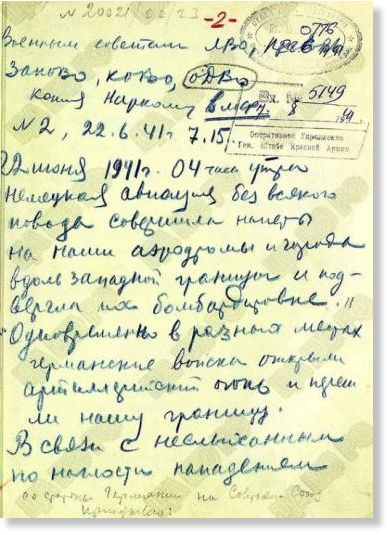 N 20021
-2-
Военным советам ЛВО, ПрибОВО,
ЗапОВО, КОВО, ОДВО
копия Наркому В.М.Флота
Вх. № 5149
N 2, 22.6.41г. 7.15
Оперативное Управление
Ген. Штаба Красной Армии
22 июня 1941г. 04 часа утра
немецкая авиация без всякого
повода совершила налеты
на наши аэродромы и города
вдоль западной границы и под-
вергла их бомбардировке.
Одновременно в разных местах
германские войска открыли
артиллерийский огонь и переш
ли нашу границу.
В связи с неслыханным
по наглости нападением
со стороны Германии на Советский Союз
Приказываю: